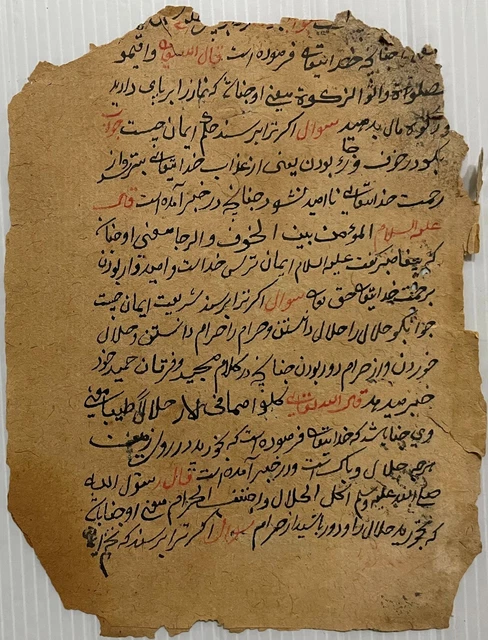 چنانکه خدایتعالی فرموده است قال الله تعالی و اقیمو
الصلواة و اتوا الزکوة معنی او چنانست که نماز را برپای دارید
و زکوة مال بدهید سوال اگر ترا پرسند حکم ایمان چیست جواب
بگو در خوف و رجا بودن یعنی از عذاب خدایتعالی بترس و از
رحمت خدایتعالی ناامید نشود چنانچه در خبر آمده است قال
علیه السلام المؤمن بین الخوف و الرجا معنی او چنان
که پیغامبر گفت علیه السلام ایمان ترس خداست و امیدوار بودن
برحمت خدایتعالی حق تعالی سوال اگر ترا پرسند شریعت ایمان چیست
جواب بگو حلال را حلال دانستن و حرام را حرام دانستن و حلال
خوردن و از حرام دور بودن چنانچه در کلام مجید و فرقان حمید خود
خبر میدهد قال الله تعالی کلوا مما فی الارض حلالا طیبا معنی
وی چنان باشد که خدایتعالی فرموده است که بخورید در روی زمین
هرچه حلال و پاکست و در خبر آمده است قال رسول الله
صلی الله علیه وسلم اکل الحلال واجتنب الحرام معنی او چنانست
که بخورید حلال را و دور باشید از حرام سوال اگر ترا پرسند که